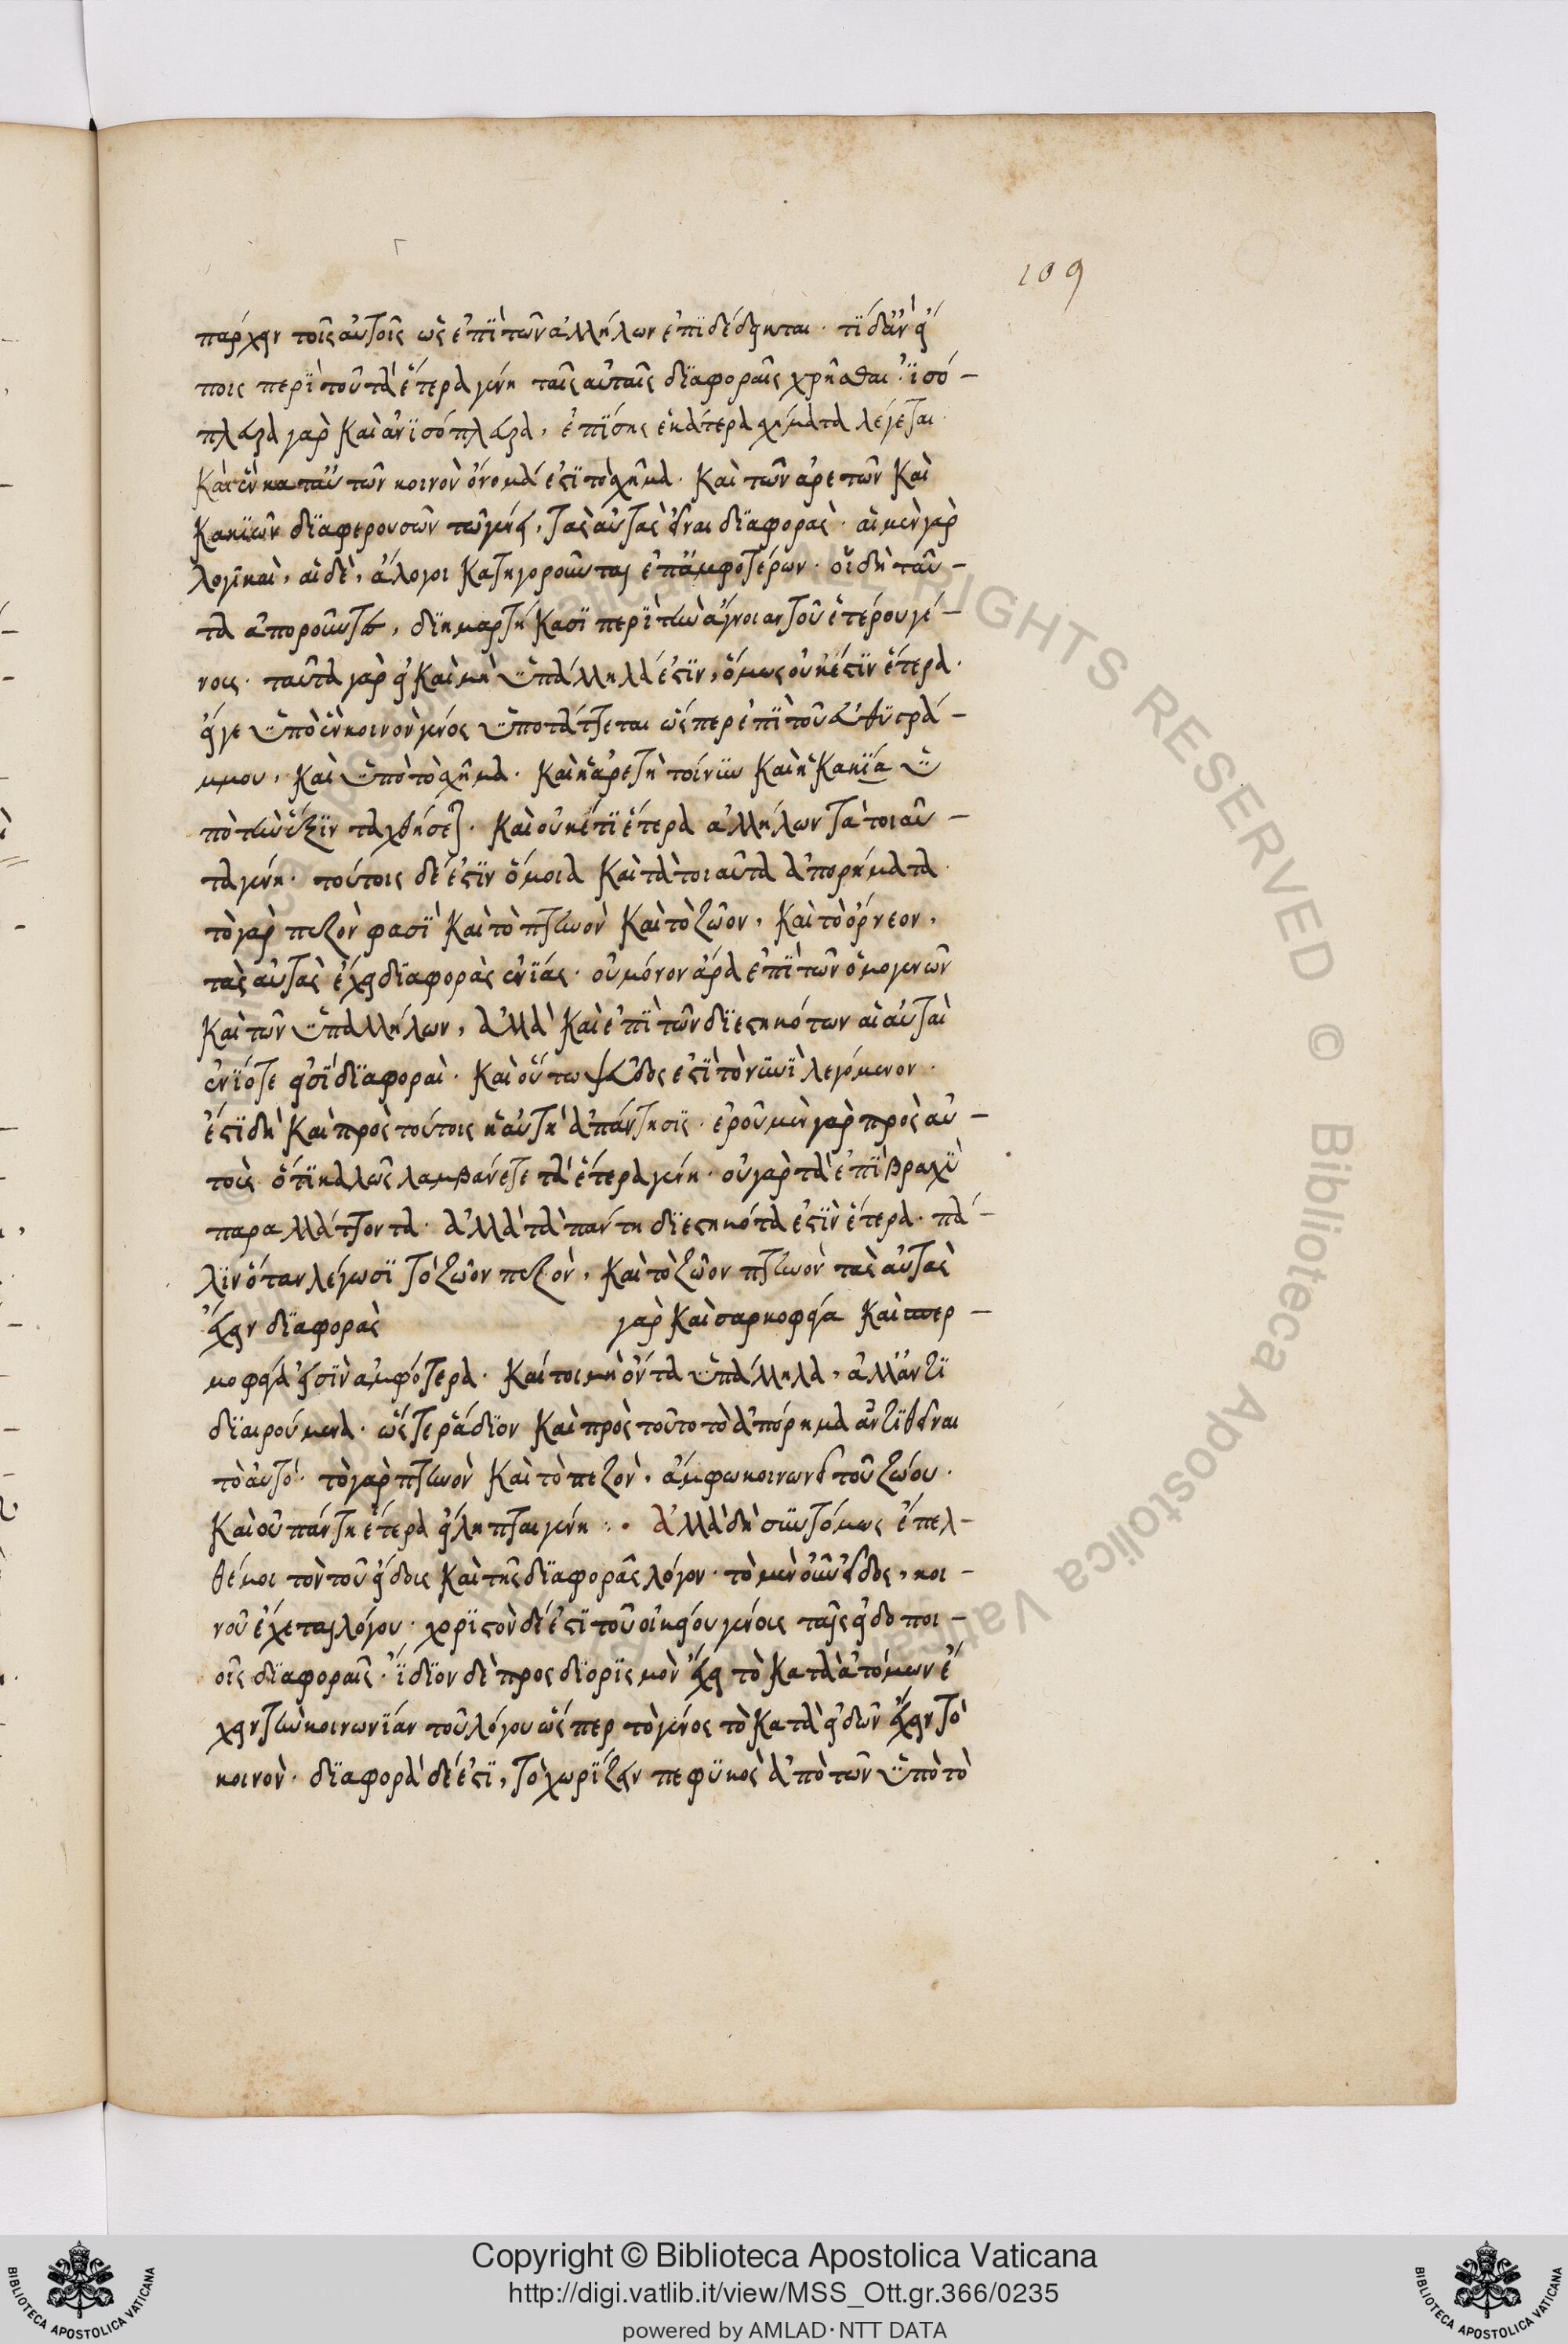 109
πάρχειν τοῖς αὐτοῖς ὡς ἐπὶ τῶν ἀλλήλων ἐπιδέδεικται· τί δ' ἂν εἴ
ποις περὶ τοῦ τὰ ἕτερα γένη ταῖς αὐταῖς διαφοραῖς χρῆσθαι· ἰσό-
πλευρα γὰρ καὶ ἀνισόπλευρα, ἐπίσης ἑκάτερα σχήματα λέγεται·
καὶ ἓν κατ' αὐτῶν κοινὸν ὄνομά ἐστι τὸ σχῆμα. καὶ τῶν ἀρετῶν καὶ
κακιῶν διαφερουσῶν τῷ γένει, τὰς αὐτὰς εἶναι διαφοράς· αἱ μὲν γὰρ
λογικαὶ, αἱ δὲ, ἄλογοι κατηγοροῦνται ἐπ' ἀμφοτέρων. οἱ δὴ ταῦ-
τα ἀποροῦντες, διημαρτήκασι περὶ τὴν ἄγνοιαν τοῦ ἑτέρου γέ-
νους· ταῦτα γὰρ εἰ καὶ μὴ ὑπάλληλά ἐστιν, ὅμως οὐκ ἔστιν ἕτερα·
εἴγε ὑπὸ ἓν κοινὸν γένος ὑποτάττεται ὥσπερ ἐπὶ τοῦ εὐθυγρά-
μμου, καὶ ὑπὸ τὸ σχῆμα. καὶ ἡ ἀρετὴ τοίνυν καὶ ἡ κακία ὑ
πὸ τὴν ἕξιν ταχθήσεται. καὶ οὐκέτι ἕτερα ἀλλήλων τὰ τοιαῦ-
τα γένη· τούτοις δέ ἐστιν ὅμοια καὶ τὰ τοιαῦτα ἀπορήματα·
τὸ γὰρ πεζόν φασι καὶ τὸ πτηνὸν καὶ τὸ ζῶον, καὶ τὸ ὄρνεον,
τὰς αὐτὰς ἔχει διαφορὰς ἐνίας· οὐ μόνον ἄρα ἐπὶ τῶν ὁμογενῶν
καὶ τῶν ὑπαλλήλων, ἀλλὰ καὶ ἐπὶ τῶν διεστηκότων αἱ αὐταὶ
ἐνίοτε εἰσὶ διαφοραί. καὶ οὕτω ψεῦδος ἐστὶ τὸ νυνὶ λεγόμενον·
ἔστι δὴ καὶ πρὸς τούτοις ἡ αὐτὴ ἀπάντησις· ἐροῦμεν γὰρ πρὸς αὐ-
τοὺς ὅτι καλῶς λαμβάνετε τὰ ἕτερα γένη· οὐ γὰρ τὰ ἐπὶ βραχὺ
παραλλάττοντα· ἀλλὰ τὰ πάντη διεστηκότα ἐστὶν ἕτερα· πά-
λιν ὅταν λέγωσι τὸ ζῶον πεζὸν, καὶ τὸ ζῶον πτηνὸν τὰς αὐτὰς
ἔχειν διαφορὰς γὰρ καὶ σαρκοφεία καὶ σπερ-
μοφεία εἰσὶν ἀμφότερα· καίτοι μὴ ὄντα ὑπάλληλα, ἀλλ' ἀντι
διαιρούμενα· ὥστε ῥάδιον καὶ πρὸς τοῦτο τὸ ἀπόρημα ἀντιθεῖναι
τὸ αὐτό· τὸ γὰρ πτηνὸν καὶ τὸ πεζὸν, ἄμφω κοινωνεῖ τοῦ ζώου·
καὶ οὐ πάντη ἕτερα εἴληπται γένη :· ἀλλὰ δὴ συντόμως ἐπελ-
θέμοι τὸν τοῦ εἴδους καὶ τῆς διαφορᾶς λόγον· τὸ μὲν οὖν εἶδος, κοι-
νοῦ ἔχεται λόγου· χοριστὸν δέ ἐστι τοῦ οἰκείου γένους ταῖς εἰδοποι-
οῖς διαφοραῖς· ἴδιον δὲ προσδιορισμὸν ἔχει τὸ κατὰ ἀτόμων ἔ
χειν τὴν κοινωνίαν τοῦ λόγου ὥσπερ τὸ γένος τὸ κατὰ εἰδῶν ἔχειν τὸ
κοινὸν· διαφορὰ δέ ἐστι, τὸ χωρίζειν πεφυκὸς ἀπὸ τῶν ὑπὸ τὸ
Copyright © Biblioteca Apostolica Vaticana
http://digi.vatlib.it/view/MSS_Ott.gr.366/0235
powered by AMLAD·NTT DATA